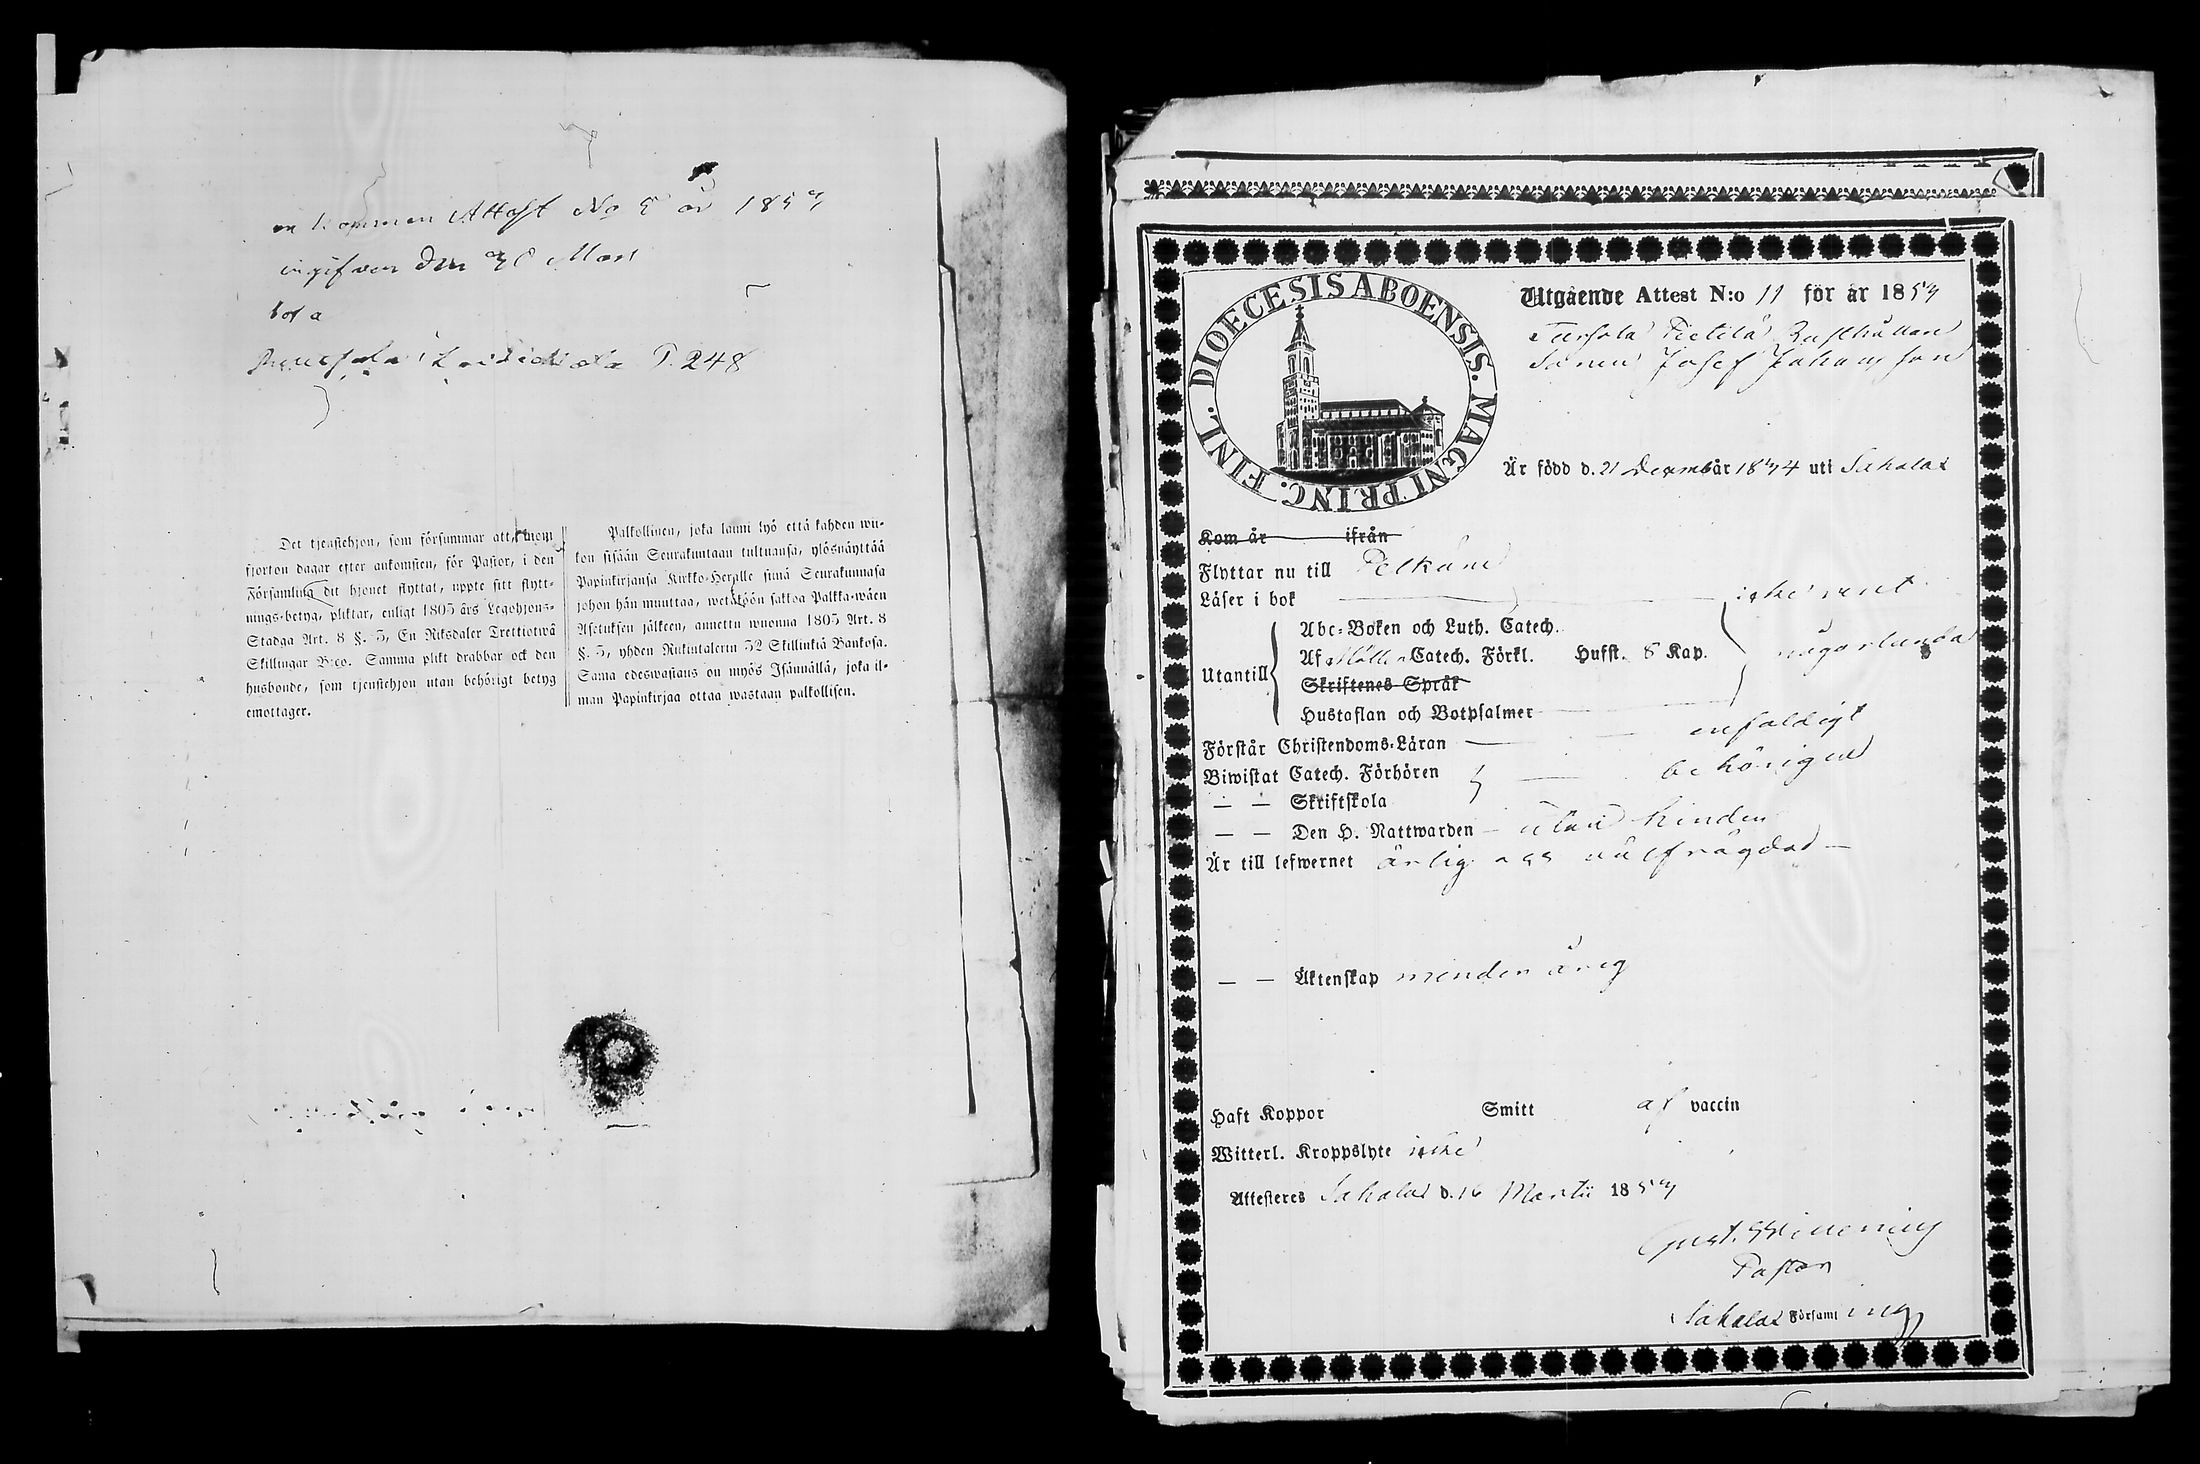 Attest No 5 år 1857
ingifven den
P. 248
Det tjenstehjon, som försummar att, inom
fjorton dagar efter ankomsten, för Pastor, i den
Församling dit hjonet flyttat, uppte sitt flytt-
nings-betyg, pliktar, enligt 1805 års Legohjons-
Stadga Art. 8 §. 5, En Riksdaler Trettiotwå
Skillingar B:co. Samma plikt drabbar ock den
husbonde, som tjenstehjon utan behörigt betyg
emottager.
Palkollinen, joka laimi lyö että kahden wii-
kon sisään Seurakuntaan tultuansa, ylösnäyttää
Papinkirjansa Kirkko-Herralle siinä Seurakunnasa
johon hän muuttaa, wetäköön sakkoa Palkka-wäen
Asetuksen jälkeen, annettu wuonna 1805 Art. 8
§. 5, yhden Riikintalerin 32 Skillinkiä Bankosa.
Sama edeswastaus on myös Isännällä, joka il-
man Papinkirjaa ottaa wastaan palkollisen.
DIOECESIS ABOENSIS. MAGNI PRINC. FINL.
Utgående Attest N:o 11 för år 1857
Pietilä Rusthållar
Sonen Josef Johansson
Är född d. 21 December år 1834 uti Sahalax
Kom år ifrån
Flyttar nu till Pelkäne
Läser i bok
icke rent
Abc-Boken och Luth. Catech.
Utantill
Af Möllers Catech. Förkl. Husst. 8 Kap.
någorlunda
Skriftenes Språk
Hustaflan och Botpsalmer
Förstår Christendoms-Läran enfaldigt
Biwistat Catech. Förhören behörigen
— — Skriftskola
— — Den H. Nattwarden utan hinder
Är till lefwernet ärlig och välfrägdad
— — Äktenskap minderårig
Haft Koppor Smitt af vaccin
Witterl. Kroppslyte icke
Attesteres Sahalax d. 16 Martii 1857
Gust.
Pastor
Sahalax Församling